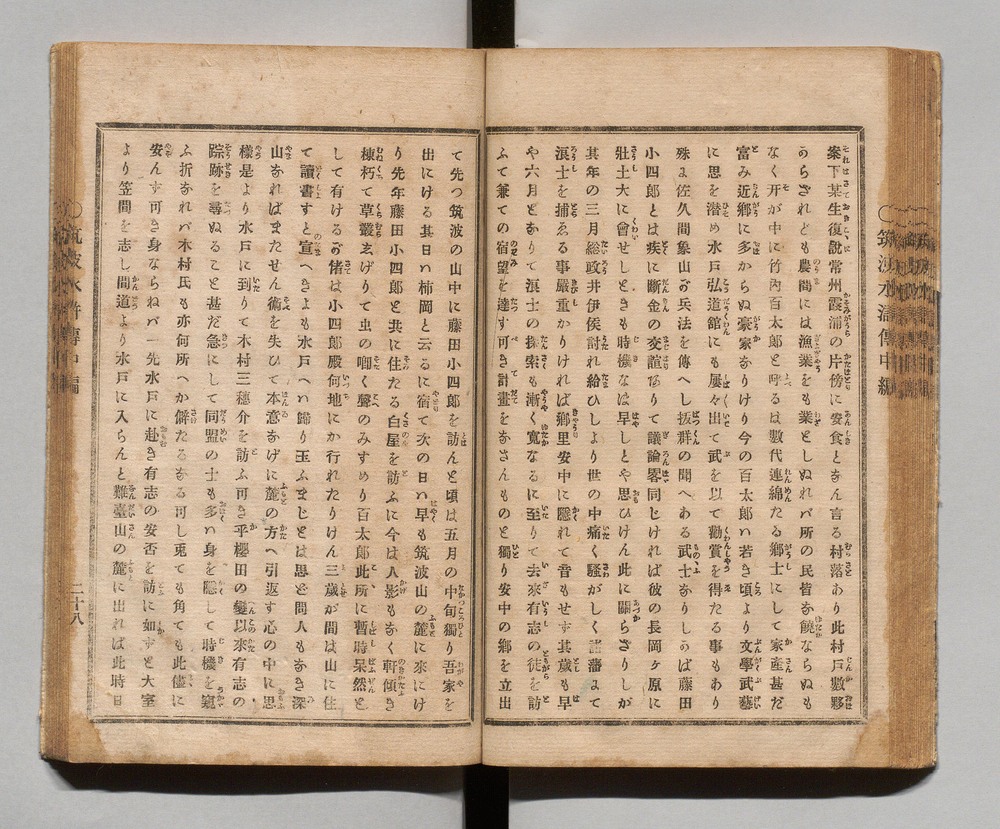 筑波水滸傳中編
案下某生復說常州霞浦の片傍に安食となん言る村落あり此村戸數夥
うらざれども農間には漁業をも業としぬれバ所の民皆な饒ならぬも
なく开が中に竹內百太郎と呼るは數代連綿たる鄉士にして家産甚だ
富み近鄉に多からぬ豪家なりけり今の百太郎ハ若き頃より文學武藝
に思を潜め水戸弘道舘にも屢々出て武を以て勸賞を得たる事もあり
殊ま佐久間象山お兵法を傳へし拔群の聞へある武士なりしうば藤田
小四郎とは疾に斷金の交誼ありて議論畧同じければ彼の長岡ヶ原に
壯士大に會せしときも時機なほ早しとや思ひけん此に關らざりしが
其年の三月総政井伊侯討れ給ひしより世の中痛く騷がしく諸藩まて
浪士を捕ゑる事嚴重かりければ鄉里安中に隱れて音もせず其歲も早
や六月となりて浪士の探索も漸く寬なるに至りて去來有志の徒を訪
ふて兼ての宿望を達す可き計畫をなさんものと獨り安中の鄉を立出
て先つ筑波の山中に藤田小四郎を訪んと頃は五月の中旬獨り吾家を
出にける其日ハ柿岡と云るに宿て次の日ハ早も筑波山の麓に來にけ
り先年藤田小四郎と共に住たる白屋を訪ふに今は人影もなく軒傾き
棟朽て草叢ゑげりて虫の啣く聲のみすめり百太郎此所に暫時呆然と
して有けるお偖は小四郎殿何地にか行れたりけん三歲が間は山に住
て讀書すと宣へきよも水戸へハ歸り玉ふまじとは思ど問人もなき深
山なればまたせん術を失ひて本意なげに麓の方へ引返す心の中に思
樣是より水戸に到りて木村三穗介を訪ふ可き乎櫻田の變以來有志の
踪跡を尋ぬること甚だ急にして同盟の士も多ハ身を隱して時機を窺
ふ折なれバ木村氏も亦何所へか僻たるなる可し兎ても角ても此儘に
安んず可き身ならねバ一先水戸に赴き有志の安否を訪に如ずと大室
より笠間を志し間道より水戸に入らんと難臺山の麓に出れば此時日
筑波水滸傳中編
二十八